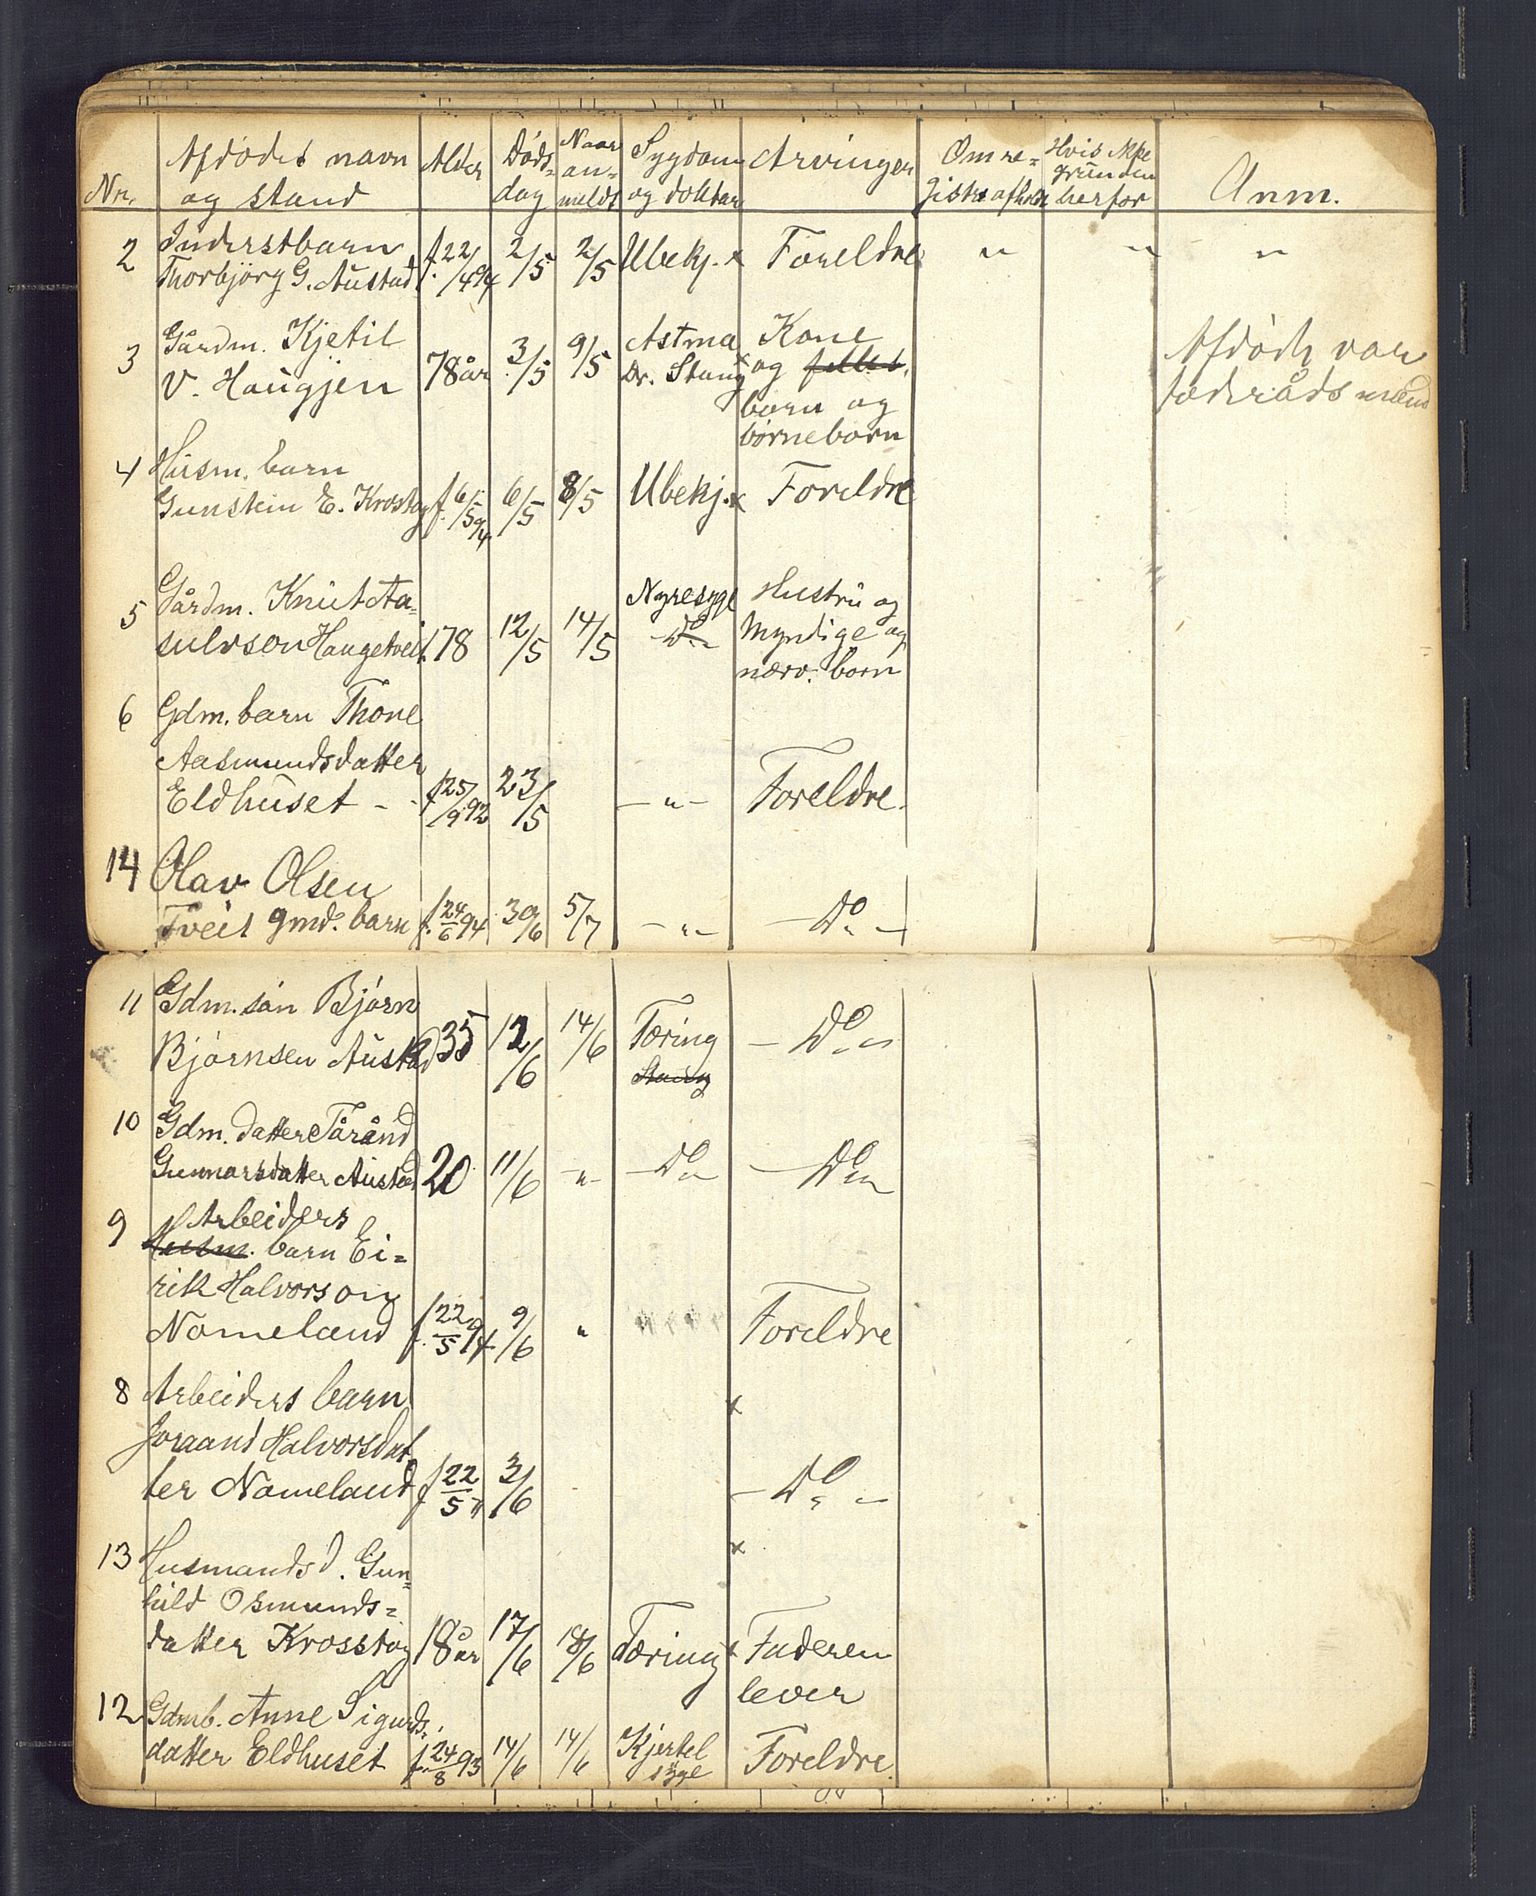 Nr. | Afdødes navn og stand | Alder | Døds-dag | Naar an=meldt | Sygdom og doktar | Arvinger | Om re=gistr. afholdt | Hvis ikke grunden herfor | Anm.
2 | Inderstbarn
Thorbjörg G. Austad | f. 22/4 94 | 2/5 | 2/5 | Ubekj. x | Foreldre | " | " | "
3 | Gårdm. Kjetil
V. Haugjen | 78 år | 3/5 | 9/5 | Astma
Dr. Stang x | Kone
og
barn og
børnebørn | Afdøde var
føderådsmand
4 | Husm. barn
Gunstein E. Krostøg | f. 6/5 94 | 6/5 | 8/5 | Ubekj. x | Foreldre
5 | Gårdm. Knut Aa=
sulvson Haugetveit | 78 | 12/5 | 14/5 | Nyresyge
- Do - | Hustru og
myndige og
nærv. born
6 | Gdm. barn Thone
Aasmundsdatter
Eldhuset - | f. 25/9 92 | 23/5 | - " - | Foreldre.
14 | Olav Olsen
Tveit gmds. barn | f. 24/6 94 | 30/6 | 5/7 | - " - | - Do -
11 | Gdm. søn Bjørn
Bjørnsen Austad | 35 | 12/6 | 14/6 | Tæring
Stang | - Do -
10 | Gdm. datter Tårånd
Gunnarsdatter Austad | 20 | 11/6 | - " - | - Do - | - Do -
9 | Arbeiders
Husm. barn Ei=
rik Halvorson
Nomeland | f. 22/5 94 | 9/6 | " | Foreldre
8 | Arbeiders barn
Joraand Halvorsdat
ter Nomeland | f. 22/5 " | 3/6 | x | - Do -
13 | Husmandsd. Gun=
hild Osmunds=
datter Krosstøg | 18 år | 17/6 | 18/6 | Tæring x | Faderen
lever
12 | Gdmb. Anne Sigurds.
datter Eldhuset | f. 24/8 93 | 14/6 | 14/6 | Kjertel
syge | Foreldre.